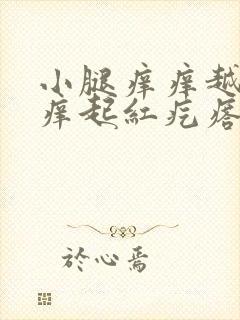 小腿痒痒越
痒起紅疙瘩
於心焉